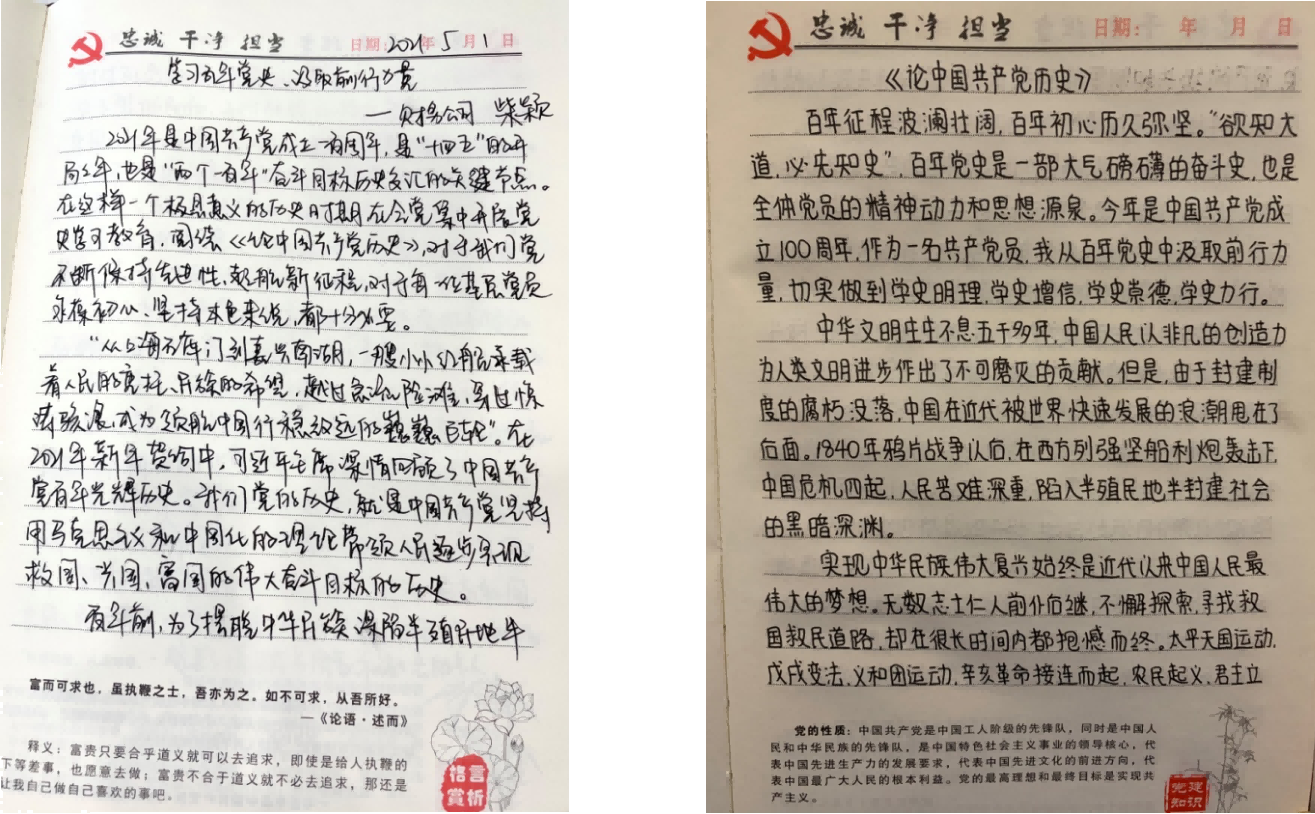 忠诚 干净 担当 日期: 2021年 5月 1日
学习百年党史、汲取前行力量
—财务公司 柴颖
2021年是中国共产党成立一百周年,是“十四五”的开
局之年,也是“两个一百年”奋斗目标历史交汇的关键节点。
在这样一个极具意义的历史时期在全党集中开展党
史学习教育,围绕《论中国共产党历史》,对于我们党
不断保持先进性、起航新征程,对于每一位基层党员
永葆初心、坚持本色来说,都十分必要。
“从上海石库门到嘉兴南湖,一艘小小红船承载
着人民的重托、民族的希望,越过急流险滩,穿过惊
涛骇浪,成为领航中国行稳致远的巍巍巨轮”。在
2021年新年贺词中,习近平主席深情回顾了中国共产
党百年光辉历史。我们党的历史,就是中国共产党坚持
用马克思主义和中国化的理论带领人民逐步实现
救国、兴国、富国的伟大奋斗目标的历史。
百年前,为了摆脱中华民族深陷半殖民地半
富而可求也,虽执鞭之士,吾亦为之。如不可求,从吾所好。
—《论语·述而》
释义:富贵只要合乎道义就可以去追求,即使是给人执鞭的
下等差事,也愿意去做;富贵不合于道义就不必去追求,那还是
让我自己做自己喜欢的事吧。
语言
赏析
忠诚 干净 担当 日期: 年 月 日
《论中国共产党历史》
百年征程波澜壮阔,百年初心历久弥坚。“欲知大
道,必先知史”,百年党史是一部大气磅礴的奋斗史,也是
全体党员的精神动力和思想源泉。今年是中国共产党成
立100周年,作为一名共产党员,我从百年党史中汲取前行力
量,切实做到学史明理,学史增信,学史崇德,学史力行。
中华文明生生不息五千多年,中国人民以非凡的创造力
为人类文明进步作出了不可磨灭的贡献。但是,由于封建制
度的腐朽没落,中国在近代被世界快速发展的浪潮甩在了
后面。1840年鸦片战争以后,在西方列强坚船利炮轰击下,
中国危机四起,人民苦难深重,陷入半殖民地半封建社会
的黑暗深渊。
实现中华民族伟大复兴始终是近代以来中国人民最
伟大的梦想。无数志士仁人前仆后继,不懈探索,寻找救
国救民道路,却在很长时间内都抱憾而终。太平天国运动,
戊戌变法,义和团运动,辛亥革命接连而起,农民起义,君主立
党的性质:中国共产党是中国工人阶级的先锋队,同时是中国人
民和中华民族的先锋队,是中国特色社会主义事业的领导核心,代
表中国先进生产力的发展要求,代表中国先进文化的前进方向,代
表中国最广大人民的根本利益。党的最高理想和最终目标是实现共
产主义。
党建
知识